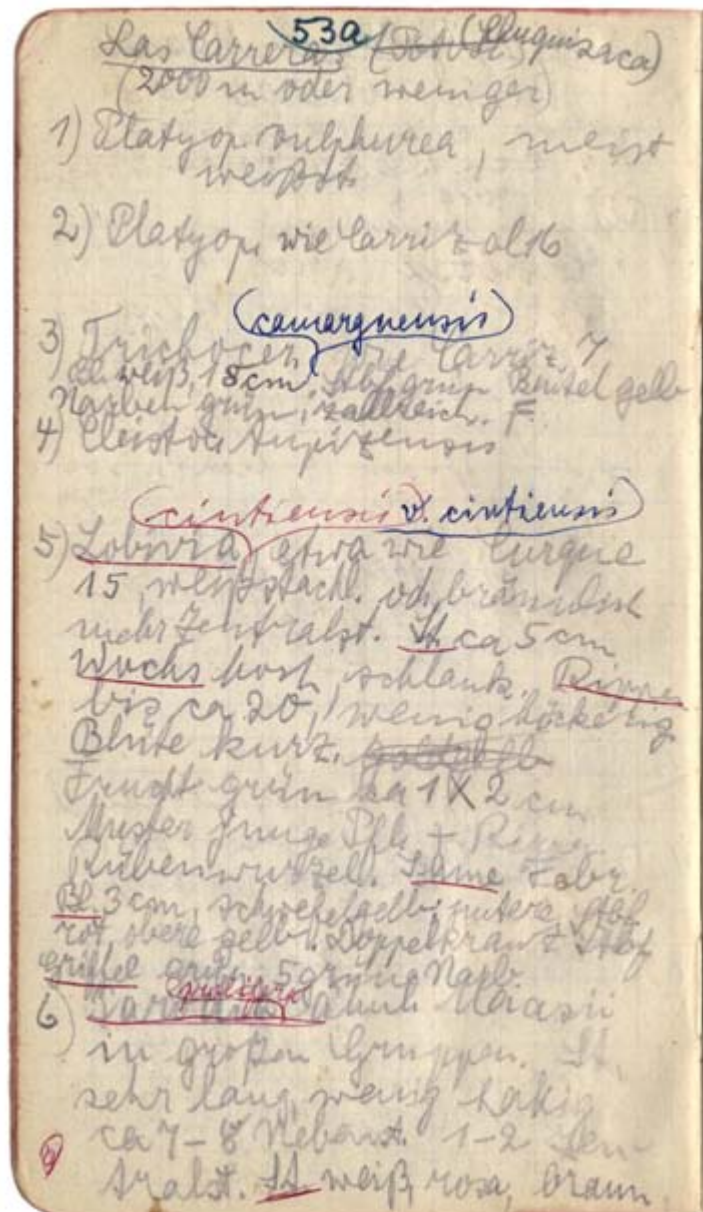 53a
Las Carreras (Potosi (Chuquisaca)
(2000 m oder weniger)
1) Platyop. sulphurea, meist
weißst.
2) Platyop. wie Carrizal 16
(camarguensis)
3) Trichocer. wie Carriz. 7
Bl. weiß, 18 cm, Stbf. grün Beutel gelb
Narben grün, zahlreich. F.
4) Cleistoc. tupizensis
(cintiensis) v. cintiensis
5) Lobivia etwa wie Curque
15, weißstachl. od. bräunlich
mehr Zentralst. St. ca 5 cm
Wuchs hoch, schlank. Rippen
bis ca 20, wenig höckerig
Blüte kurz.
Frucht grün ca 1 X 2 cm
Muster junge Pfl. +
Rübenwurzel. Same
Bl. 3 cm, schwefelgelb, untere Stbf
rot, obere gelbl. Doppelkranz Stbf
Griffel grün, 5 grüne Narb.
6)
in großen Gruppen. St.
sehr lang, wenig hakig
ca 7-8 Nebenst. 1-2 Zen-
tralst. St. weiß, rosa, braun